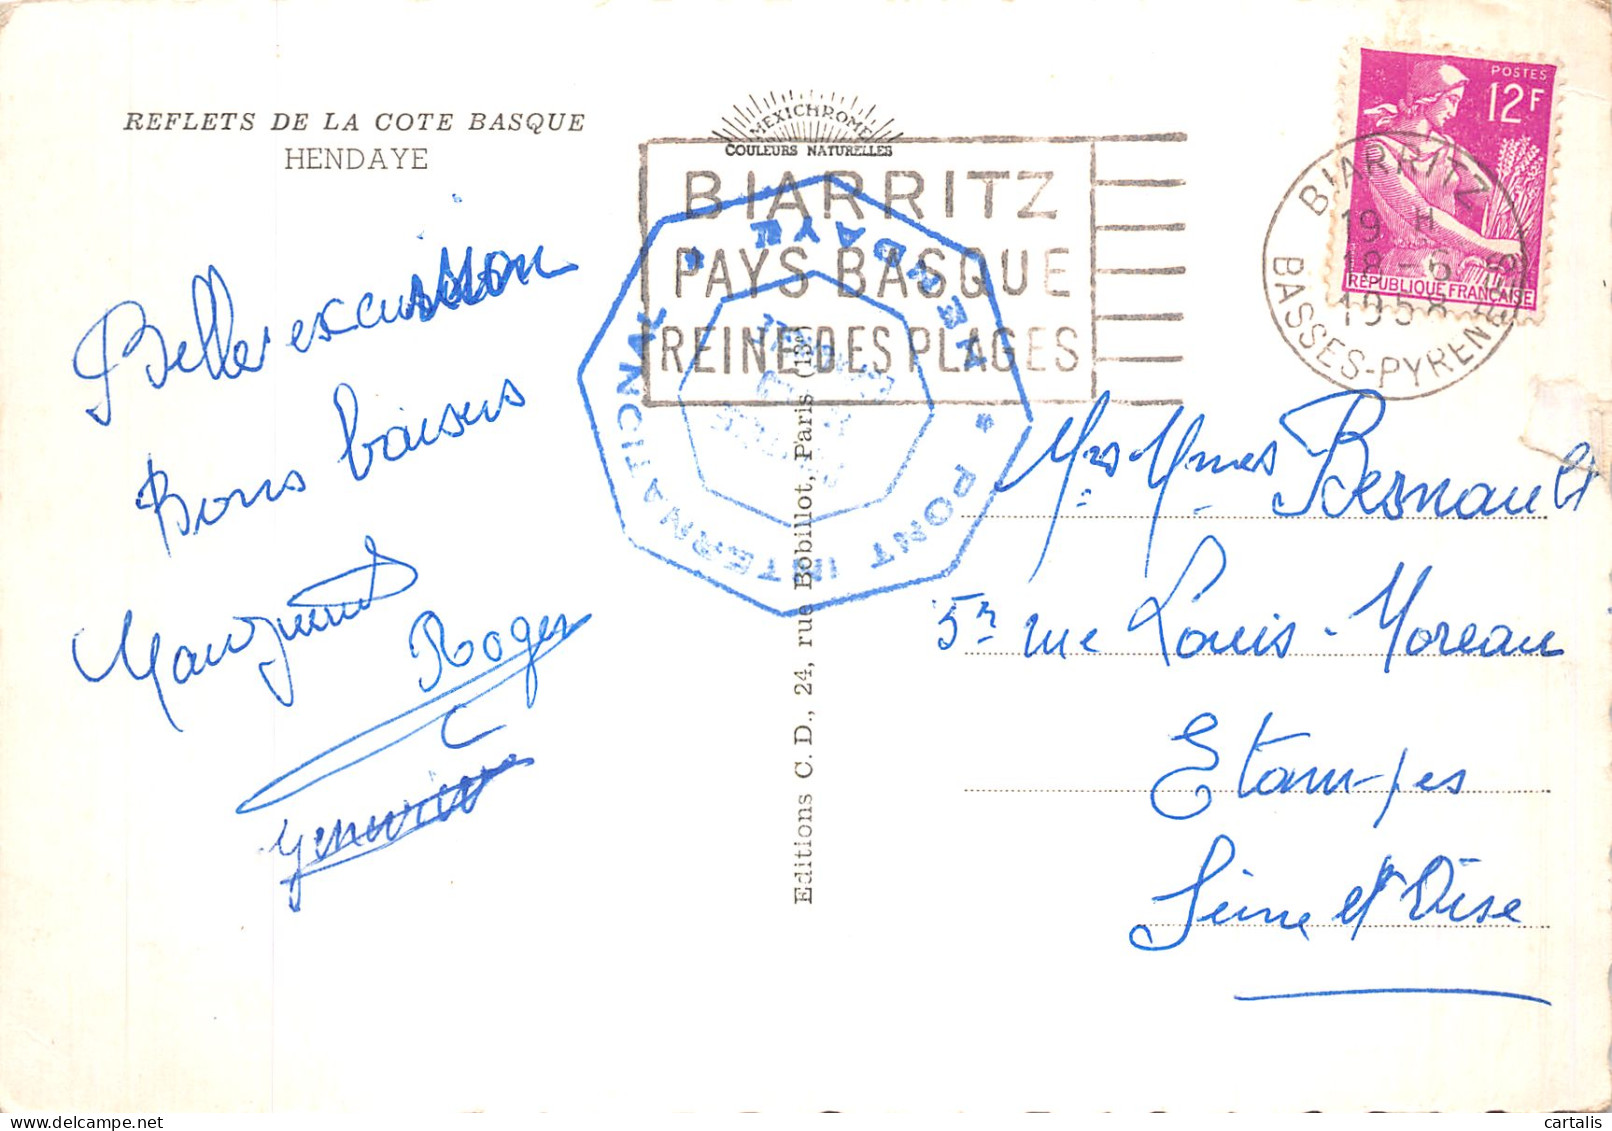 REFLETS DE LA COTE BASQUE
HENDAYE
Belle excursion
Bons baisers
Roger
MEXICHROME
COULEURS NATURELLES
BIARRITZ
PAYS BASQUE
REINE DES PLAGES
* PONT INTERNATIONAL * HENDAYE
Editions C. D., 24, rue Bobillot, Paris (13e)
POSTES
12F
RÉPUBLIQUE FRANÇAISE
BIARRITZ
19 H
18-6
1958
BASSES-PYRENEES
Mrs Mmes Besnault
5 rue Louis-Moreau
Etampes
Seine et Oise
cartalis